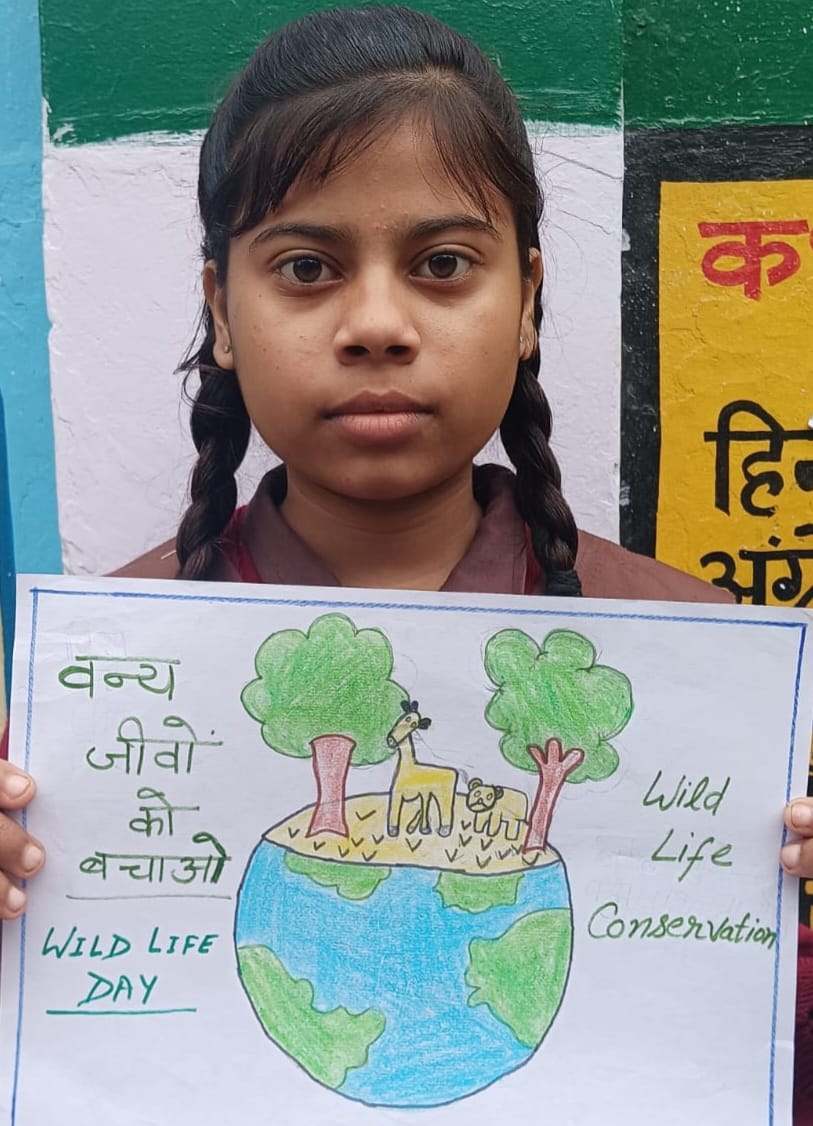 वन्य
जीवों
को
बचाओ
WILD LIFE
DAY
Wild
Life
Conservation